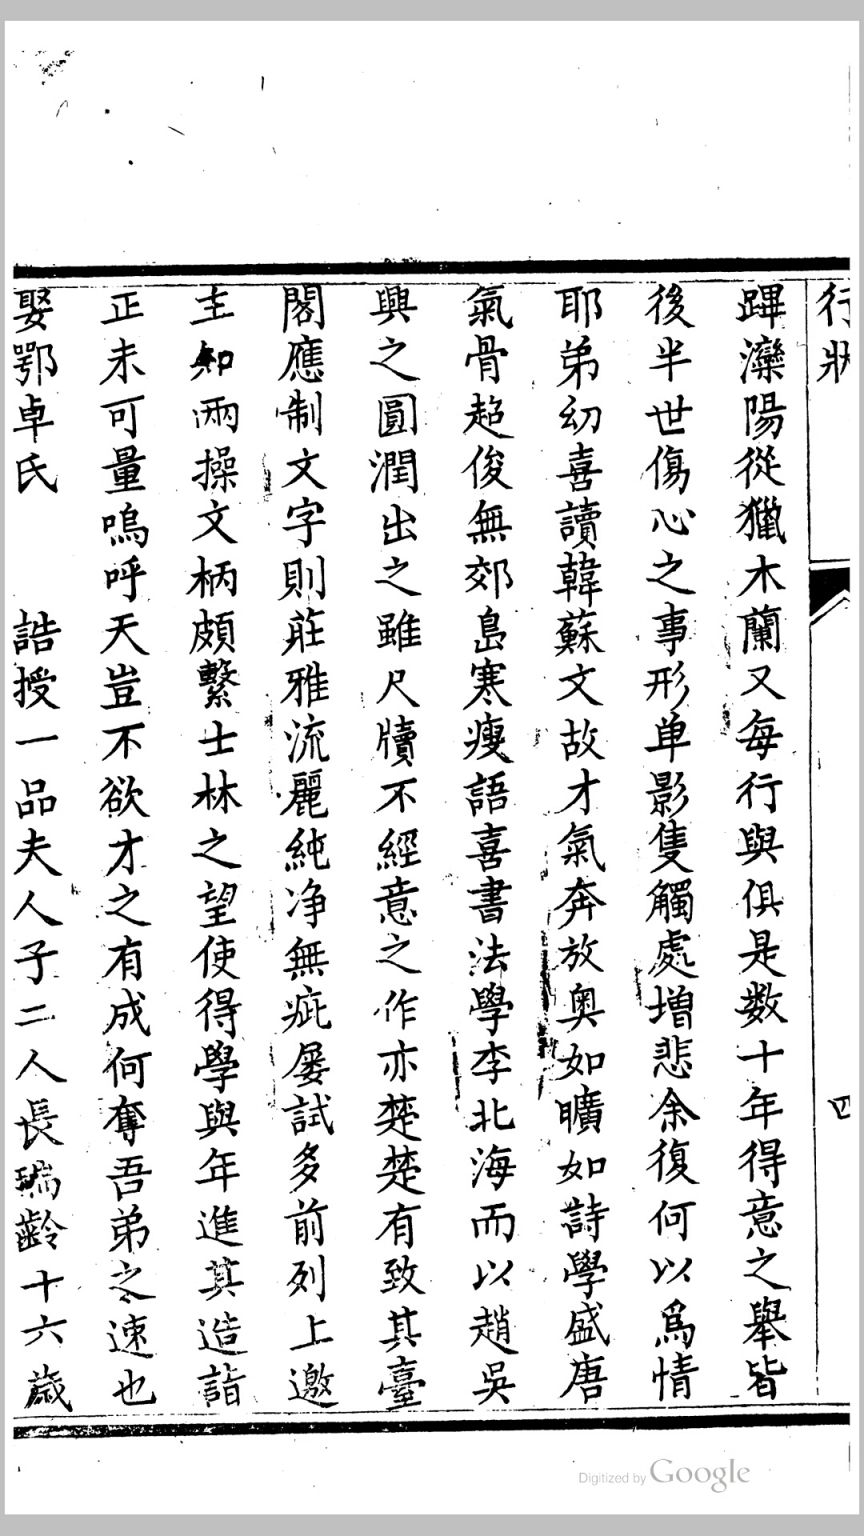 行狀
四
蹕灤陽從獵木蘭又每行與俱是数十年得意之舉皆
後半世傷心之事形单影隻觸處增悲余復何以爲情
耶弟幼喜讀韓蘇文故才氣奔放奥如曠如詩學盛唐
氣骨超俊無郊島寒瘦語喜書法學李北海而以趙吳
興之圓潤出之雖尺牘不經意之作亦楚楚有致其臺
閣應制文字則莊雅流麗純净無疵屡試多前列上邀
主知兩操文柄頗繫士林之望使得學與年進其造詣
正未可量嗚呼天豈不欲才之有成何奪吾弟之速也
娶鄂卓氏 誥授一品夫人子二人長瑞齡十六歲
Digitized by Google